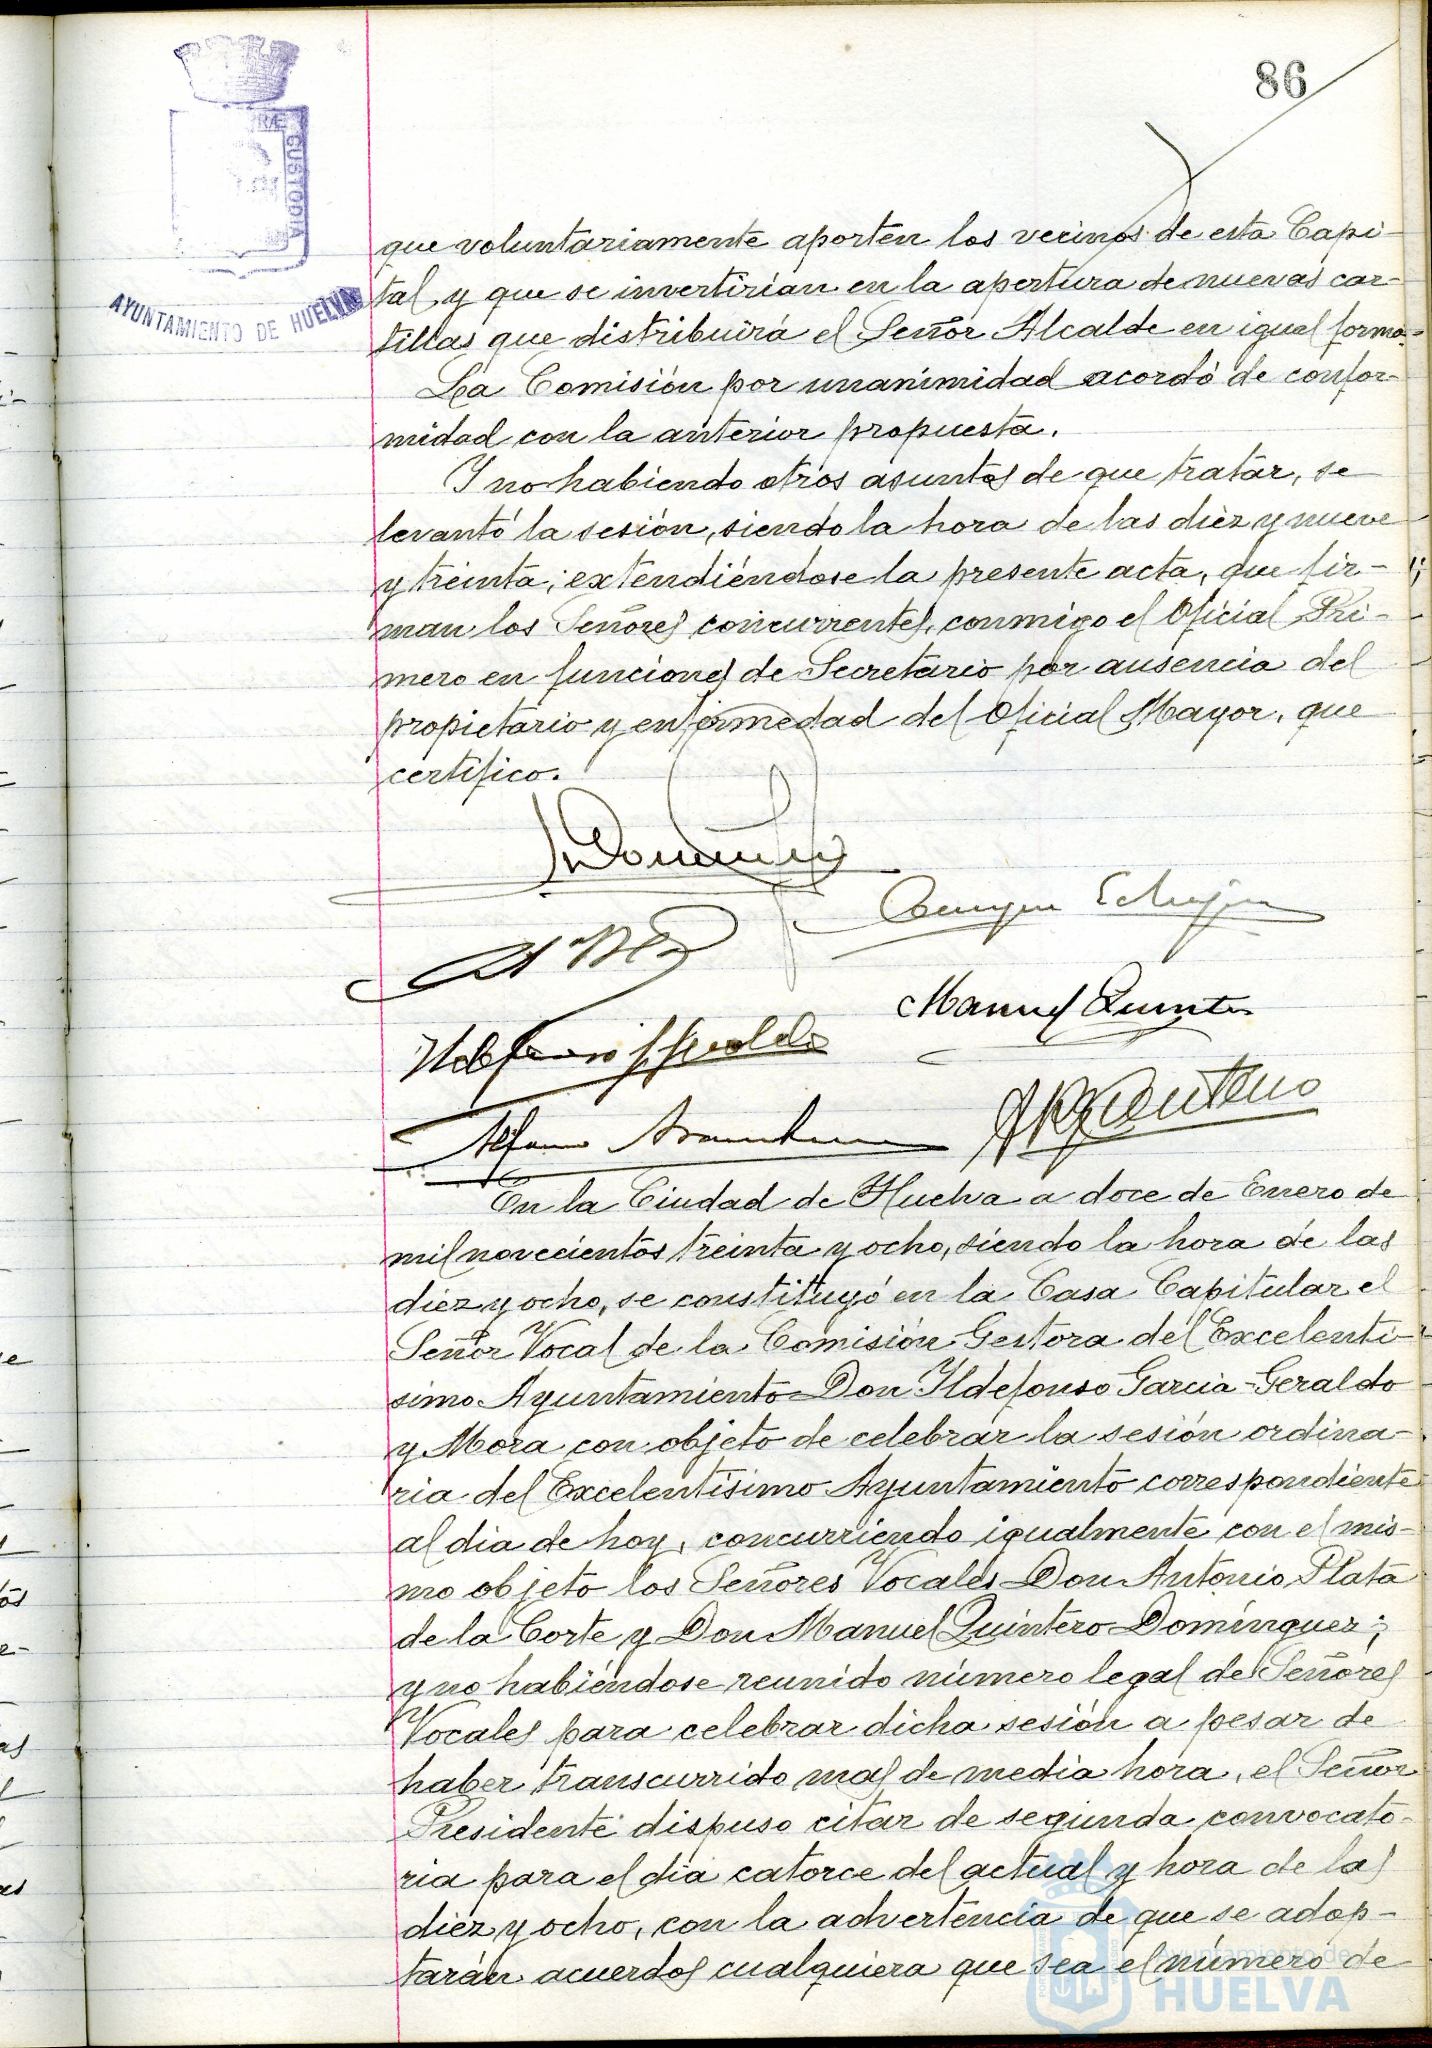 86
RÆ CUSTODIA
AYUNTAMIENTO DE HUELVA
que voluntariamente aporten los vecinos de esta Capi-
tal y que se invertirían en la apertura de nuevas car-
tillas que distribuirá el Señor Alcalde en igual forma.=
La Comisión por unanimidad acordó de confor-
midad con la anterior propuesta.
Y no habiendo otros asuntos de que tratar, se
levantó la sesión, siendo la hora de las diez y nueve
y treinta; extendiéndose la presente acta, que fir-
man los Señores concurrentes, conmigo el Oficial Pri-
mero en funciones de Secretario por ausencia del
propietario y enfermedad del Oficial Mayor, que
certifico.
Manuel Quintero
Ildefonso G. Geraldo
En la Ciudad de Huelva a doce de Enero de
mil novecientos treinta y ocho, siendo la hora de las
diez y ocho, se constituyó en la Casa Capitular el
Señor Vocal de la Comisión Gestora del Excelentí-
simo Ayuntamiento Don Ildefonso Garcia-Geraldo
y Mora con objeto de celebrar la sesión ordina-
ria del Excelentísimo Ayuntamiento correspondiente
al dia de hoy, concurriendo igualmente con el mis-
mo objeto los Señores Vocales Don Antonio Plata
de la Corte y Don Manuel Quintero Domínguez;
y no habiéndose reunido número legal de Señores
Vocales para celebrar dicha sesión a pesar de
haber transcurrido mas de media hora, el Señor
Presidente dispuso citar de segunda convocato-
ria para el dia catorce del actual y hora de las
diez y ocho, con la advertencia de que se adop-
tarán acuerdos cualquiera que sea el número de
Ayuntamiento de
HUELVA